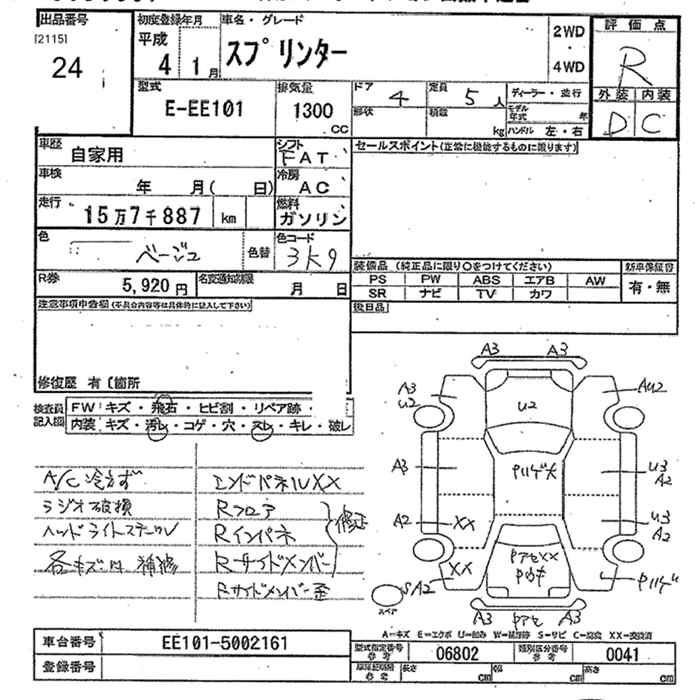 出品番号
[2115]
24
初度登録年月
平成
4 1月
車名・グレード
スプリンター
2WD
4WD
評価点
R
外装 内装
D C
型式
E-EE101
排気量
1300
cc
ドア
4
定員
5人
ディーラー・並行
形状
積数
kg
モデル年式
年
ハンドル 左・右
車歴
自家用
シフト
FAT
セールスポイント(正常に機能するものに限ります)
車検
年 月( 日)
冷房
AC
走行
15万7千887 km
燃料
ガソリン
色
ベージュ
色替
色コード
3K9
装備品 (純正品に限り〇をつけてください)
新車保証書
PS PW ABS エアB AW
SR ナビ TV カワ
有・無
R券
5,920円
名変通知期限
月 日
後日品
注意事項申告欄(不具合内容等は具体的に記入して下さい)
修復歴 有〔箇所
検査員記入欄
FW キズ・飛石・ヒビ割・リペア跡・
内装 キズ・汚レ・コゲ・穴・スレ・キレ・破レ
A/C冷えず
ラジオ破損
ヘッドライトスチール
各キズ凹補修
エンドパネルXX
Rフロア
Rインパネ
Rサイドメンバー
修正
Rサイドメンバー歪
A3 A3
A3
U2
U2
AU2
A3
Pハゲ大
U3
A2
A2
XX
U3
A2
XX
PアセXX
Pハゲ
SA2
スペア
Pアセ
A=キズ E=エクボ U=凹み W=補修跡 S=サビ C=腐食 XX=交換済
車台番号
EE101-5002161
登録番号
型式指定番号
参考
06802
類別区分番号
参考
0041
長さ
cm
幅
cm
高さ
cm